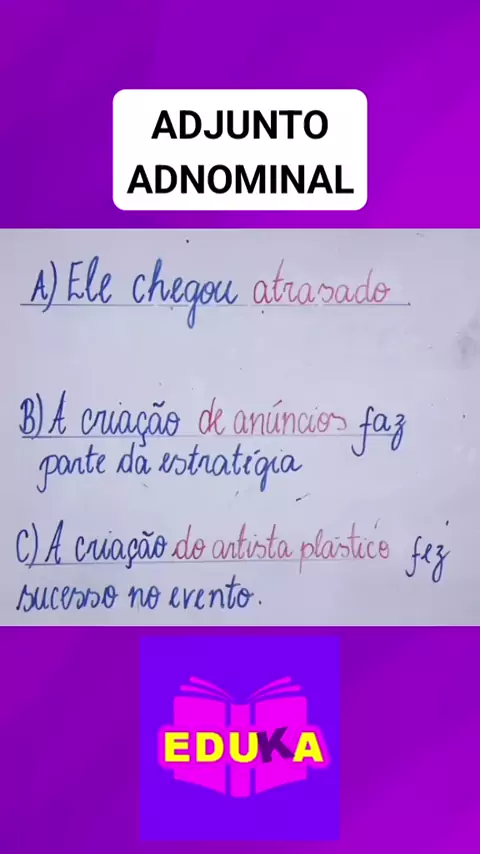 ADJUNTO
ADNOMINAL
A) Ele chegou atrasado.
B) A criação de anúncios faz
parte da estratégia
C) A criação do artista plástico fez
sucesso no evento.
EDUKA